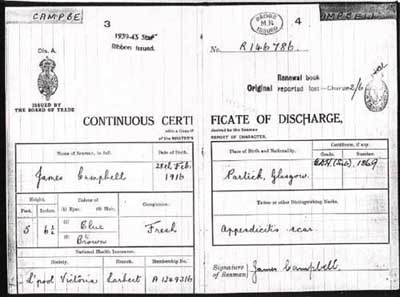 CAMPBE
3
1939-43 Star
Ribbon issued.
Dis. A.
ISSUED BY
THE BOARD OF TRADE
CONTINUOUS CERTI
Name of Seaman, in full.
Date of Birth.
James Campbell
28th Feb.
1916
Height.
Colour of
Complexion.
Feet.
Inches.
(1) Eyes.
(2) Hair.
5
6½
(1) Blue
(2) Brown
Fresh
National Health Insurance.
Society.
Branch.
Membership No.
L'pool Victoria
4
M.N.
ISSUED
No. R146786.
Renewal book
Original reported lost - Charge 2/6
FICATE OF DISCHARGE,
REPORT OF CHARACTER.
Place of Birth and Nationality.
Certificate, if any.
Grade.
Number.
Partick, Glasgow.
Tattoo or other Distinguishing Marks.
Appendicitis scar.
Signature
of Seaman
James Campbell.